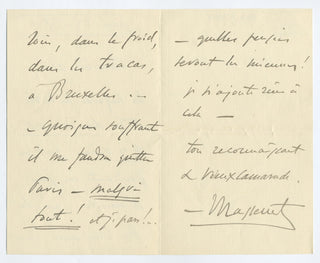 loin, dans le froid,
dans les tracas,
à Bruxelles ..
– quoique souffrant
il me faudra quitter
Paris – malgré
tout ! et je pars !..
– quelles
seront les miennes !
je n'ajoute rien à
cela –
ton reconnaissant
& vieux camarade.
– Massenet